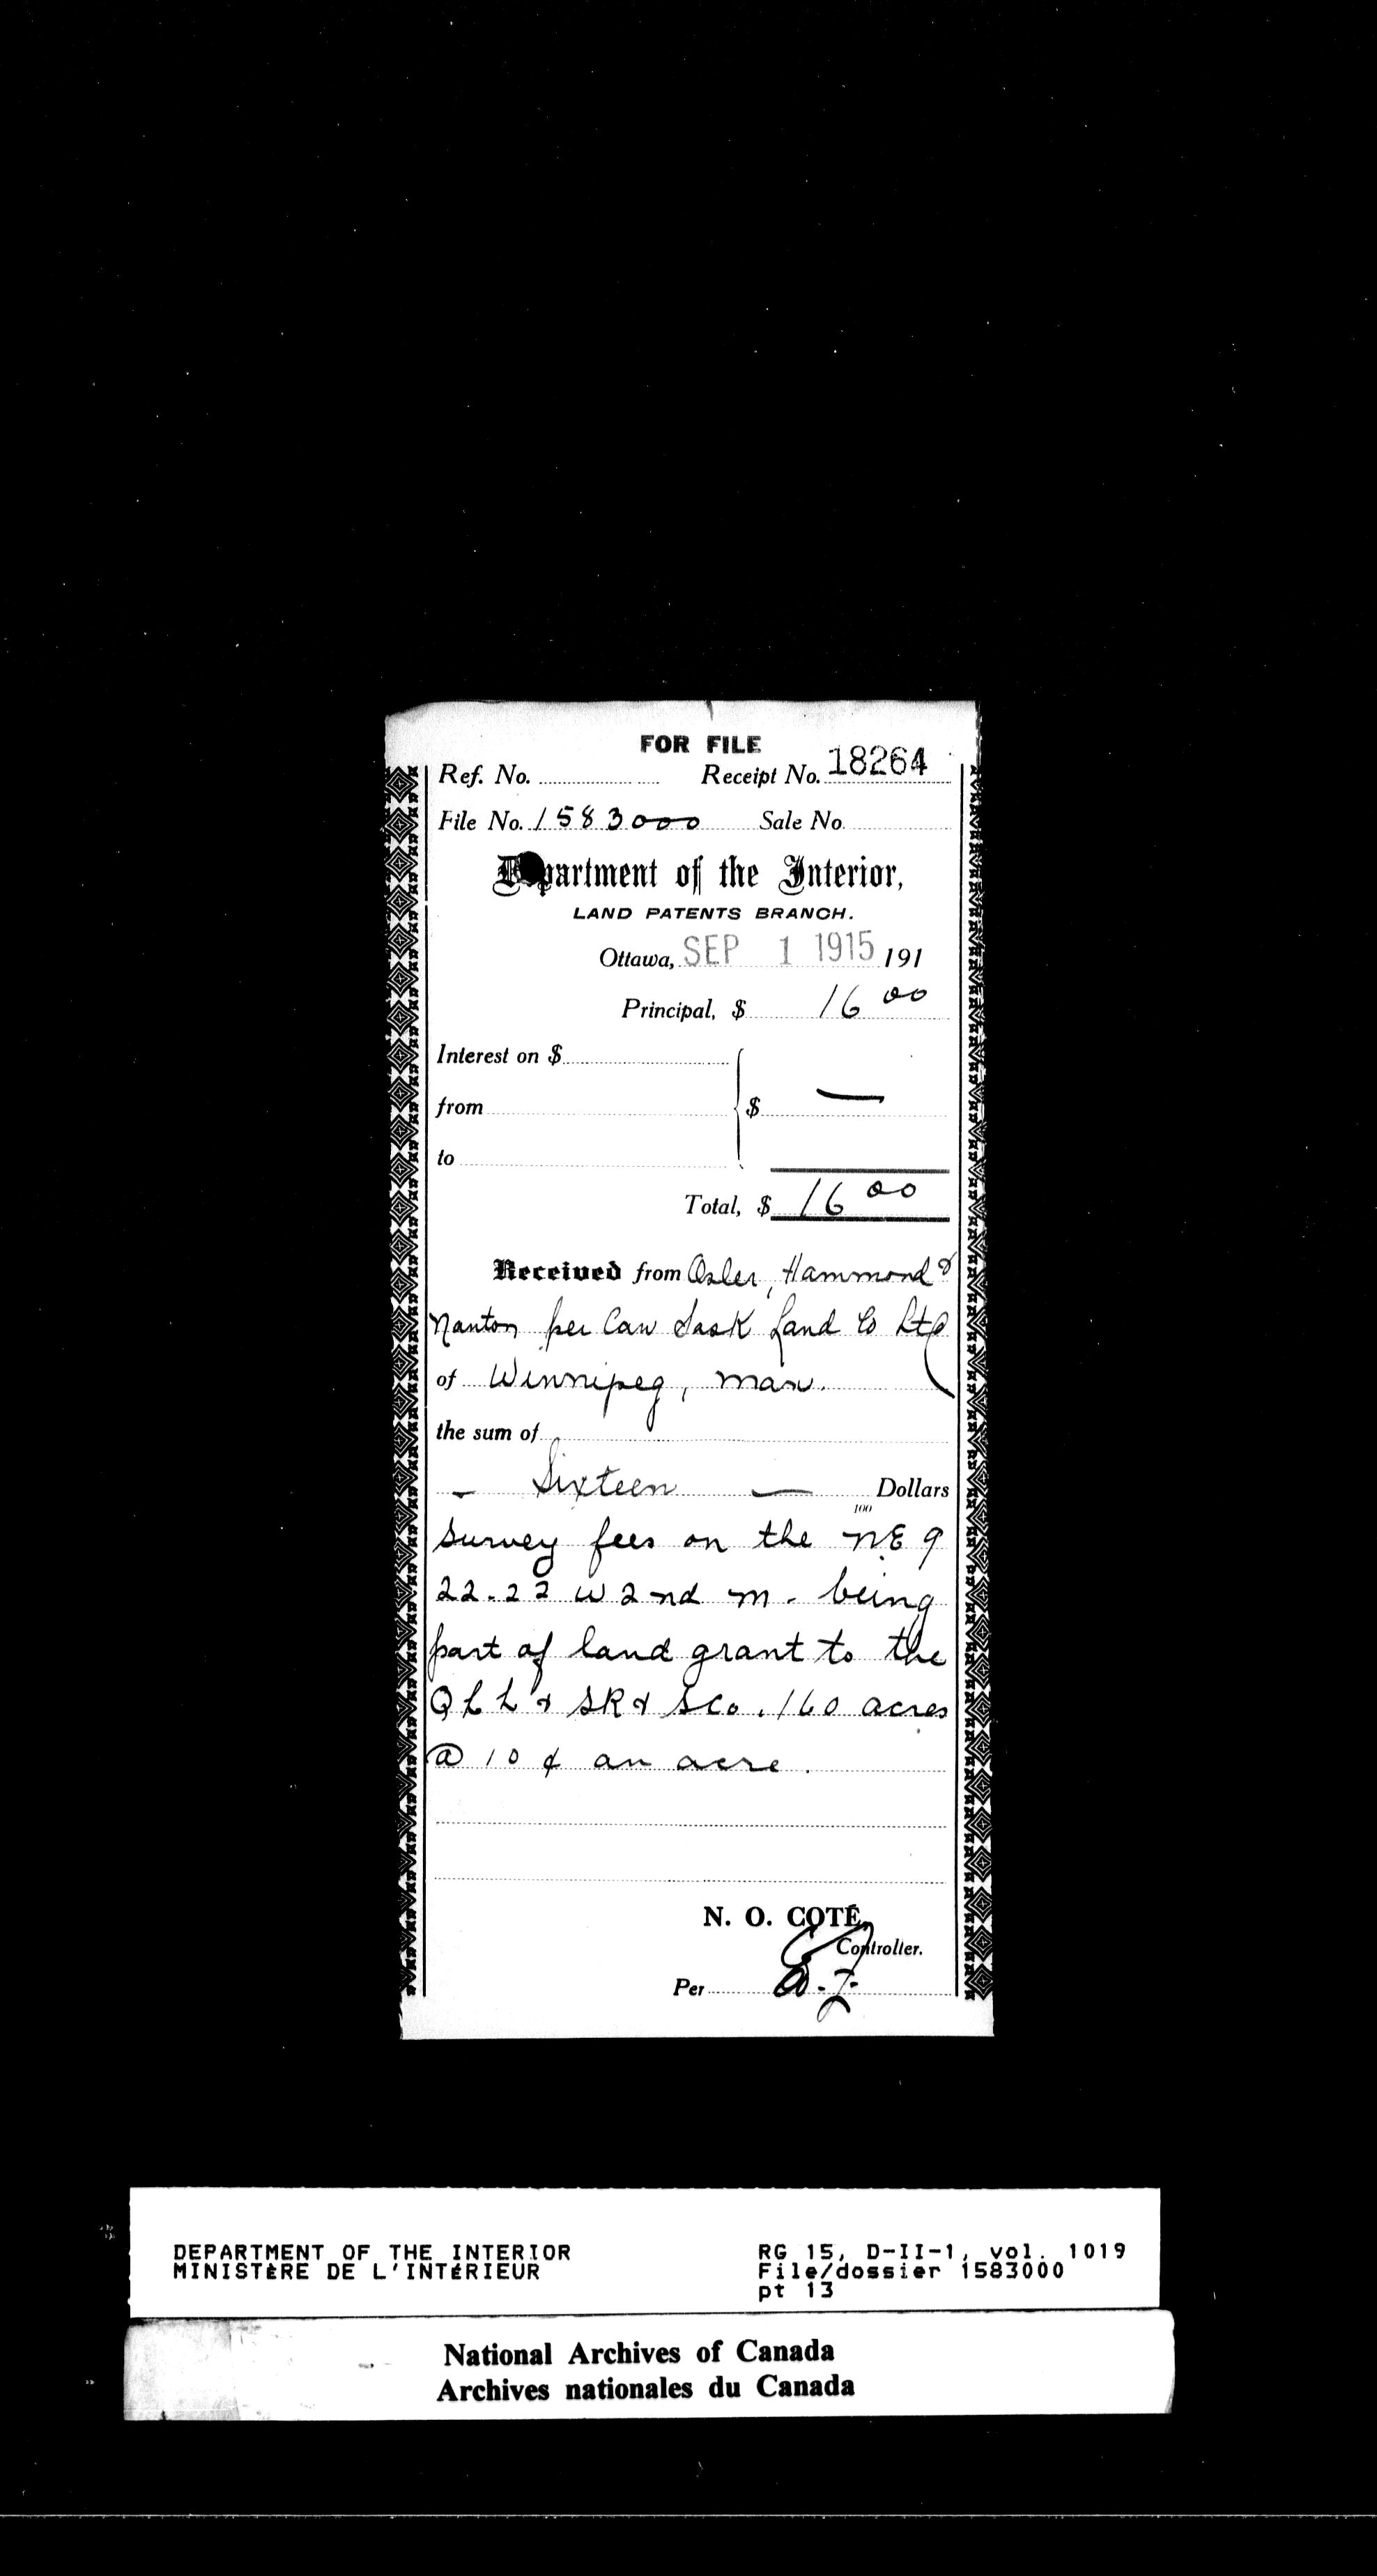 FOR FILE
Ref. No. Receipt No. 18264
File No. 1583000 Sale No.
Department of the Interior,
LAND PATENTS BRANCH.
Ottawa, SEP 1 1915 191
Principal, $ 16 00
Interest on $
from $ —
to
Total, $ 16 00
Received from Osler, Hammond &
Nanton per Can Sask Land Co Ltd
of Winnipeg, Man.
the sum of
— Sixteen — Dollars
100
Survey fees on the NE 9
22-22 W 2nd M. being
part of land grant to the
Q L L & S R & S Co. 160 acres
@ 10 ¢ an acre.
N. O. COTÉ,
Controller.
Per
DEPARTMENT OF THE INTERIOR
MINISTÈRE DE L'INTÉRIEUR
RG 15, D-II-1, vol. 1019
File/dossier 1583000
pt 13
National Archives of Canada
Archives nationales du Canada